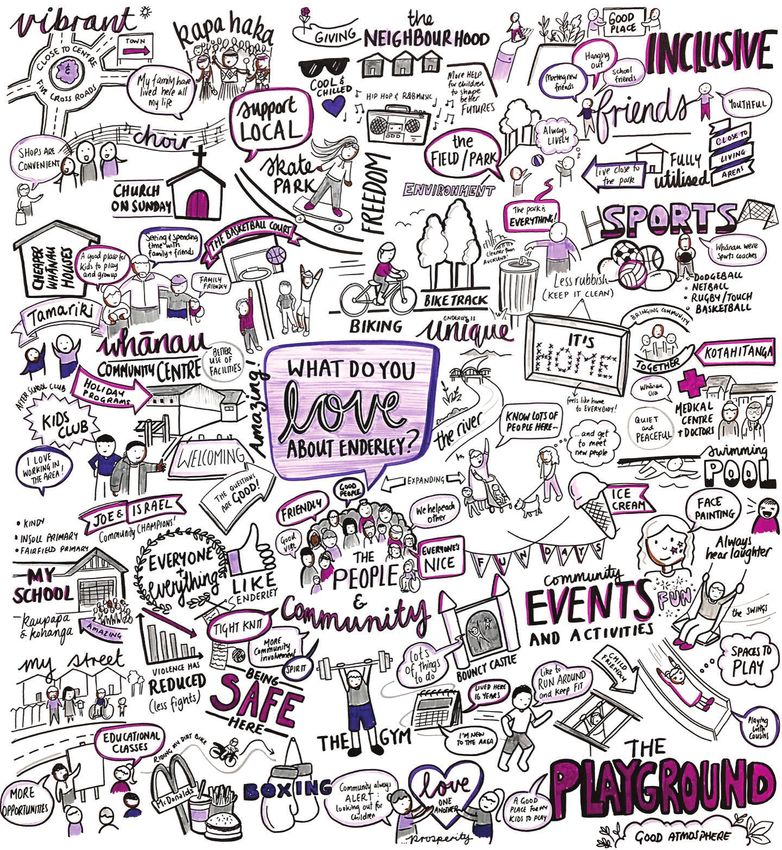 vibrant
CLOSE TO CENTRE
FIVE CROSS ROADS
TOWN
kapa haka
My family have
lived here all
my life
GIVING
the
NEIGHBOURHOOD
COOL &
CHILLED
HIP HOP & R&B MUSIC
More HELP
for children
to shape
better
FUTURES
GOOD
PLACE
INCLUSIVE
Hanging
out
Meeting new
friends
School
friends
friends
YOUTHFUL
SHOPS ARE
CONVENIENT
choir
support
LOCAL
CHURCH
ON SUNDAY
skate
PARK
FREEDOM
the
FIELD/PARK
Always
lively
ENVIRONMENT
live close to
the park
FULLY
utilised
CLOSE TO
LIVING
AREAS
The park is
EVERYTHING!
SPORTS
Whānau were
Sports coaches
• DODGEBALL
• NETBALL
• RUGBY/TOUCH
• BASKETBALL
CHEAPER
WHĀNAU
HOUSES
A good place for
kids to play
and grow up
Seeing & spending
time with
family + friends
THE BASKETBALL COURT
FAMILY
FRIENDLY
Tamariki
BIKING
BIKE TRACK
Cleaner than
AUCKLAND
Less rubbish
(KEEP IT CLEAN)
whānau
COMMUNITY CENTRE
BETTER
USE OF
FACILITIES
AFTER SCHOOL CLUB
HOLIDAY
PROGRAMS
KIDS
CLUB
Amazing!
WHAT DO YOU
love
ABOUT ENDERLEY?
ENDERLEY IS
unique
the river
IT'S
HOME
feels like home
to EVERYBODY!
BRINGING COMMUNITY
TOGETHER
KOTAHITANGA
Whānau
Ora
MEDICAL
CENTRE
+ DOCTORS
QUIET
and
PEACEFUL
swimming
POOL
KNOW LOTS OF
PEOPLE HERE...
...and get
to meet
new people
I LOVE
WORKING IN
THE AREA
WELCOMING
THE QUESTIONS
ARE GOOD!
• KINDY
• INSOLL PRIMARY
• FAIRFIELD PRIMARY
JOE & ISRAEL
Community Champions!
EXPANDING
FRIENDLY
GOOD
PEOPLE
GOOD
VIBE
We help each
other
EVERYONE'S
NICE
THE
PEOPLE
&
Community
FUN DAYS
ICE
CREAM
FACE
PAINTING
Always
hear laughter
MY
SCHOOL
kaupapa
& kohanga
AMAZING
EVERYONE
&
Everything
LIKE
ENDERLEY
VIOLENCE HAS
REDUCED
(less fights)
TIGHT KNIT
MORE
Community
involvement
SPIRIT
BEING
SAFE
HERE
community
EVENTS
AND ACTIVITIES
FUN
the SWINGS
SPACES TO
PLAY
my street
lots of
things
to do
BOUNCY CASTLE
LIVED HERE
16 YEARS
I'M NEW
TO THE AREA
like to
RUN AROUND
and keep FIT
CHILD
FRIENDLY
Playing
with
cousins
EDUCATIONAL
CLASSES
MORE
OPPORTUNITIES
RIDING MY DIRT BIKE
McDonalds
BOXING
THE GYM
Community always
ALERT +
looking out for
Children
love
ONE
ANOTHER
...prosperity
A GOOD
PLACE FOR MY
KIDS TO PLAY
THE
PLAYGROUND
GOOD ATMOSPHERE